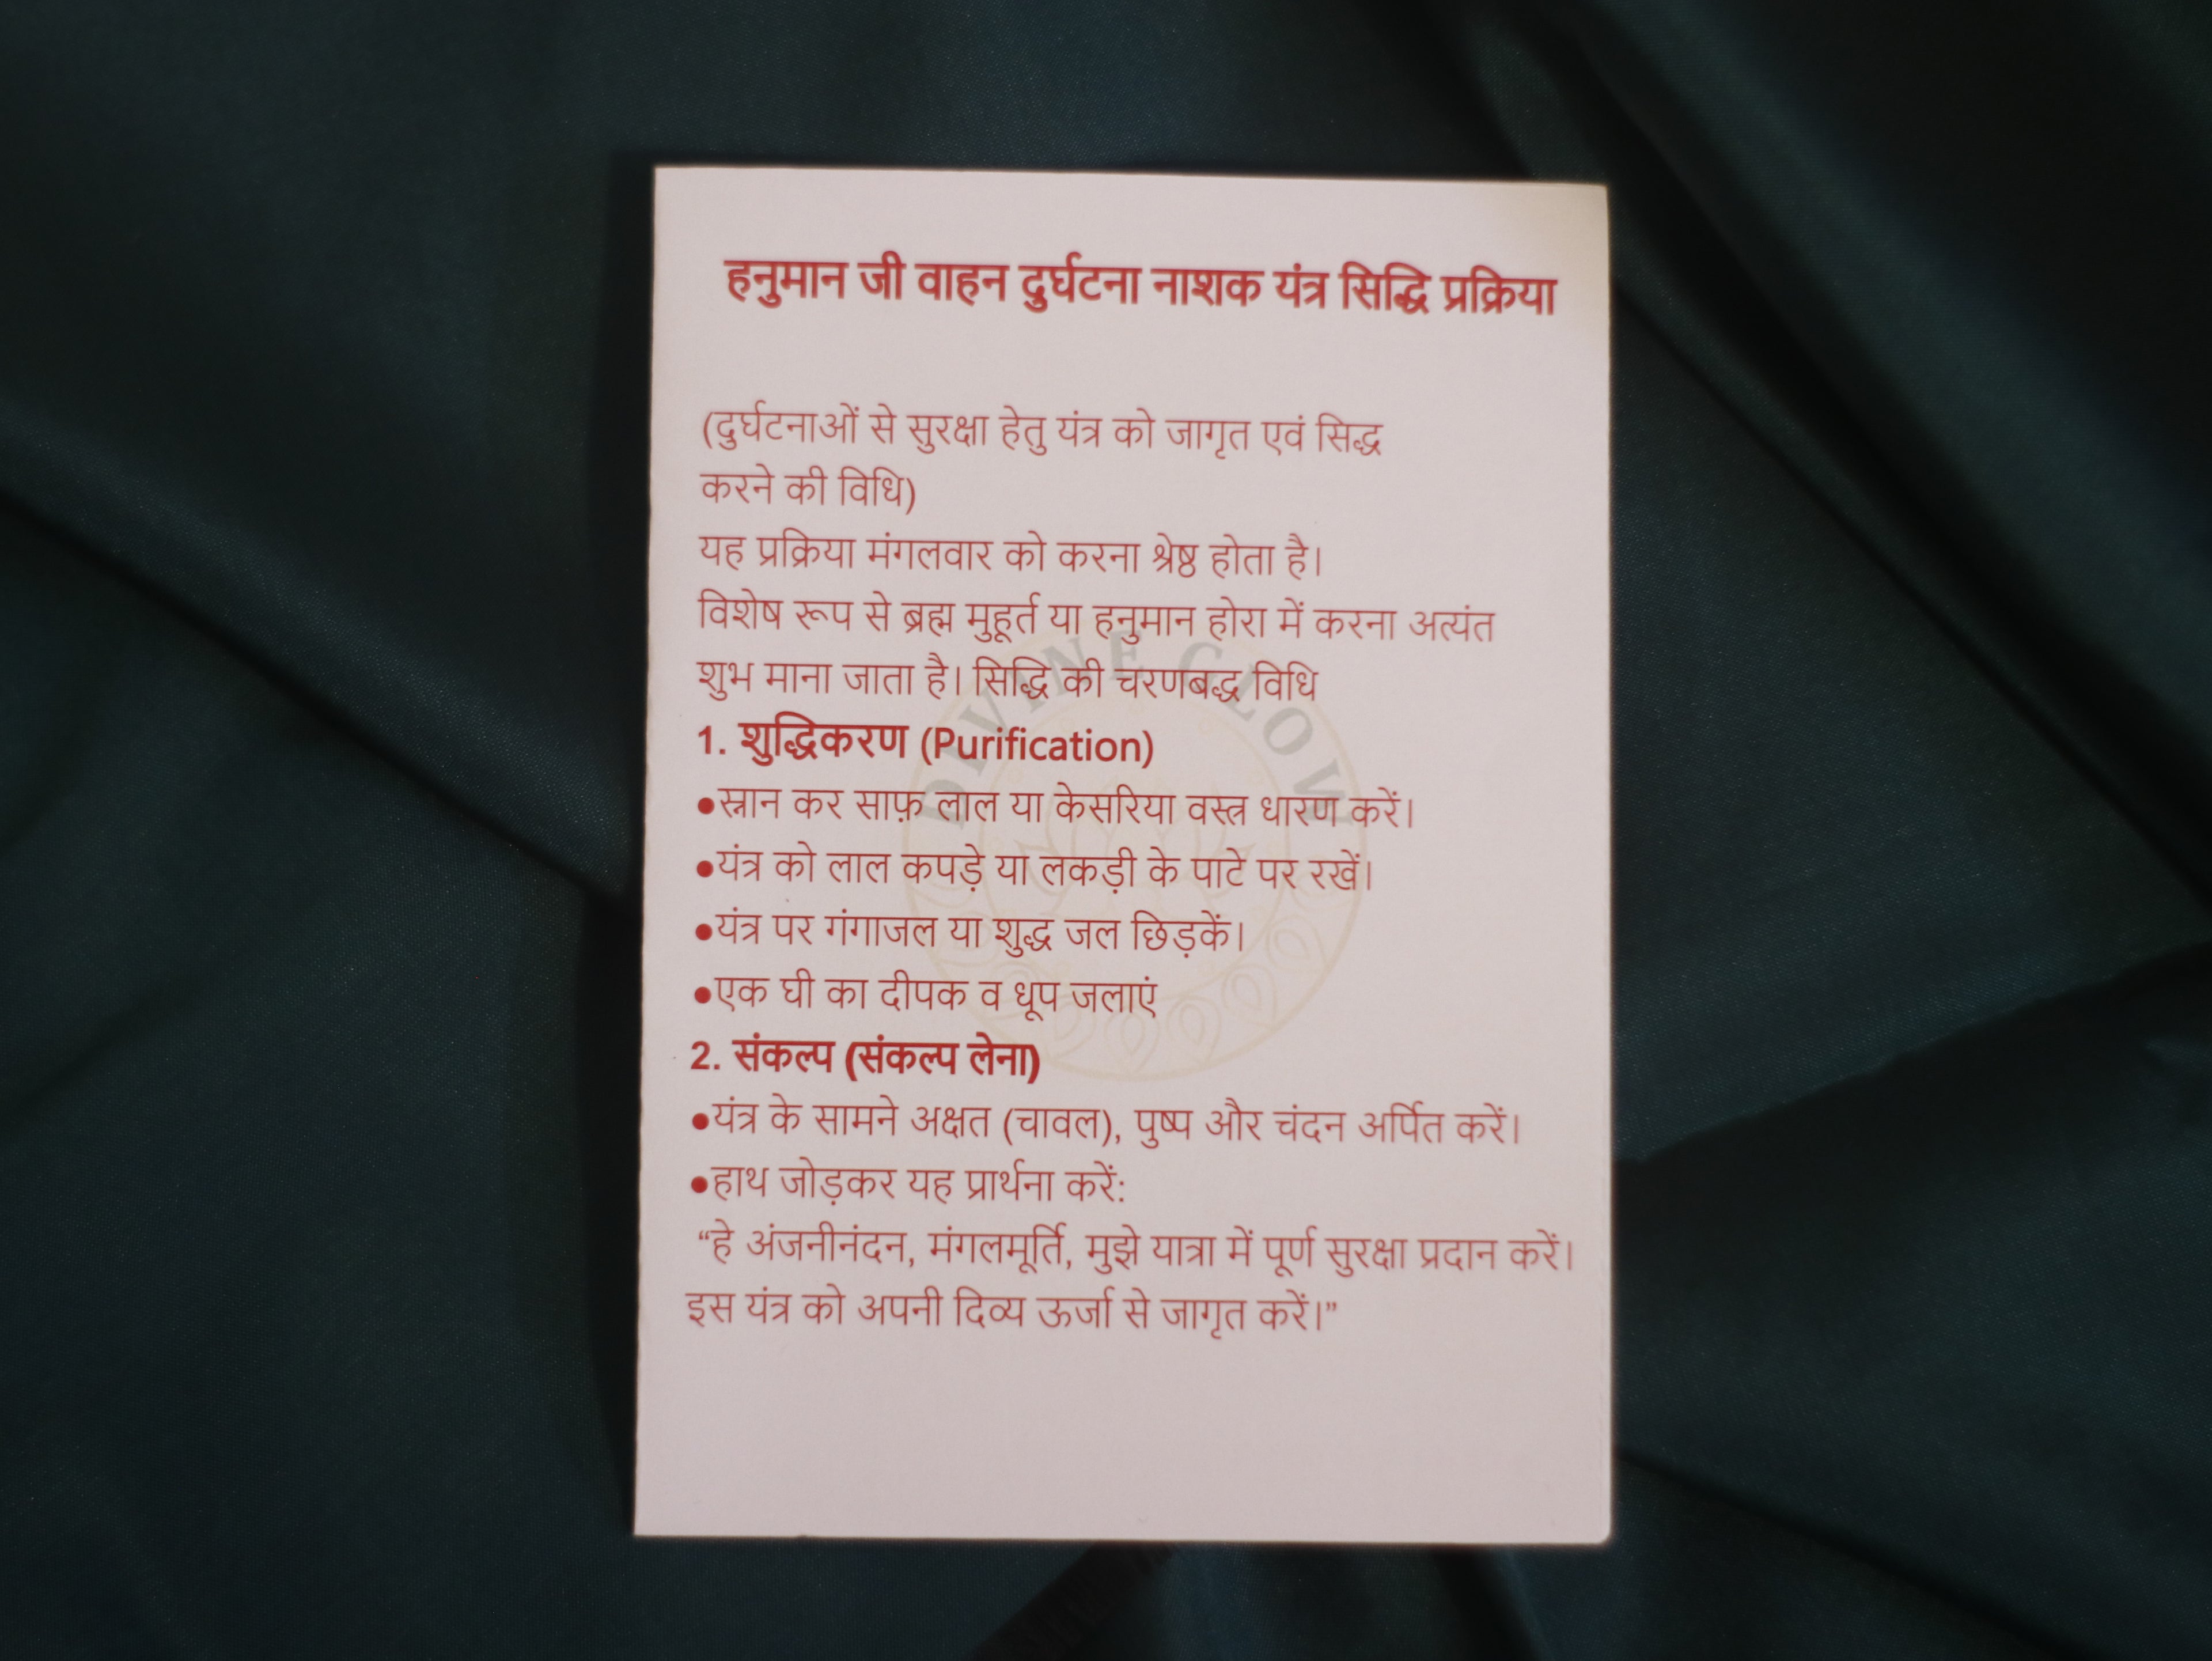 हनुमान जी वाहन दुर्घटना नाशक यंत्र सिद्धि प्रक्रिया
(दुर्घटनाओं से सुरक्षा हेतु यंत्र को जागृत एवं सिद्ध
करने की विधि)
यह प्रक्रिया मंगलवार को करना श्रेष्ठ होता है।
विशेष रूप से ब्रह्म मुहूर्त या हनुमान होरा में करना अत्यंत
शुभ माना जाता है। सिद्धि की चरणबद्ध विधि
DIVINE GLOW
1. शुद्धिकरण (Purification)
•स्नान कर साफ़ लाल या केसरिया वस्त्र धारण करें।
•यंत्र को लाल कपड़े या लकड़ी के पाटे पर रखें।
•यंत्र पर गंगाजल या शुद्ध जल छिड़कें।
•एक घी का दीपक व धूप जलाएं
2. संकल्प (संकल्प लेना)
•यंत्र के सामने अक्षत (चावल), पुष्प और चंदन अर्पित करें।
•हाथ जोड़कर यह प्रार्थना करें:
“हे अंजनीनंदन, मंगलमूर्ति, मुझे यात्रा में पूर्ण सुरक्षा प्रदान करें।
इस यंत्र को अपनी दिव्य ऊर्जा से जागृत करें।”